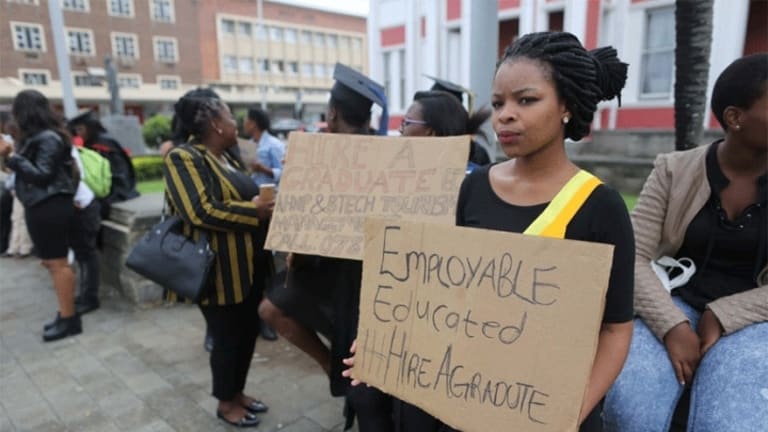 HIRE A
GRADUATE
& BTECH TOURISM
CALL 078
EMPLOYABLE
Educated
HIRE A GRADUTE